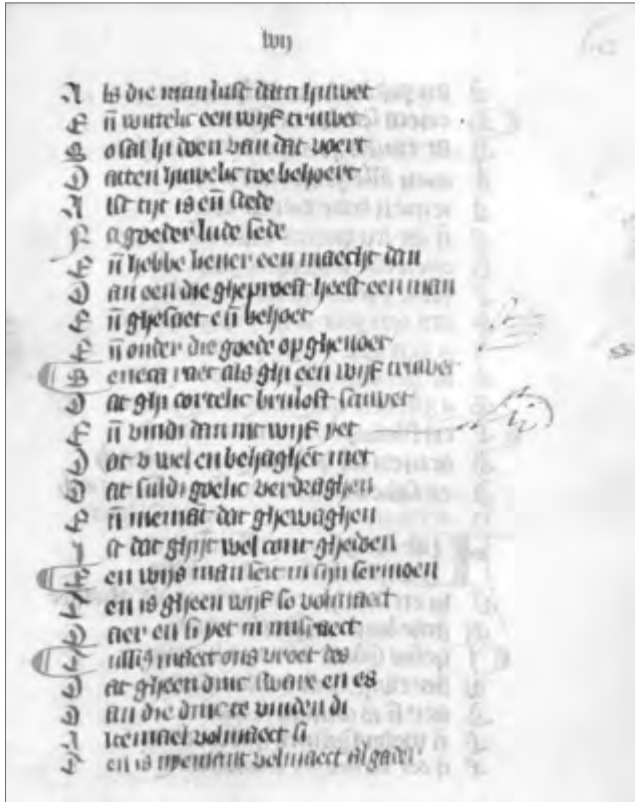 lvij
A ls die man lust dan huwet
E n̄ wittelic een wijf truwet
S o sal hi doen van dat voert
D atten huwelic toe behoert
A lst tijt is en̄ stede
N a goeder lude sede
E n̄ hebbe hener een maecht dan
D an een die gheproeft heeft een man
E n̄ ghesaet en̄ behoet
E n̄ onder die goede op ghevoet
S enen raet als ghi een wijf truwet
D at ghi cortelic bruloft
E n̄ vindi dan int wijf yet
D at v wel en behaghet niet
D at suldi goelic verdraghen
E n̄ niemāt dat ghewaghen
I st dat ghijt wel cont ghedoen
E en wijs man seit in sijn sermoen
E en is gheen wijf so volmaect
M aer en si yet in misraect
T ullius maect ons vroet des
D at gheen dinc sware en es
D an die dinc te vinden di
D ie temael volmaect si
E en is nyemant volmaect algader